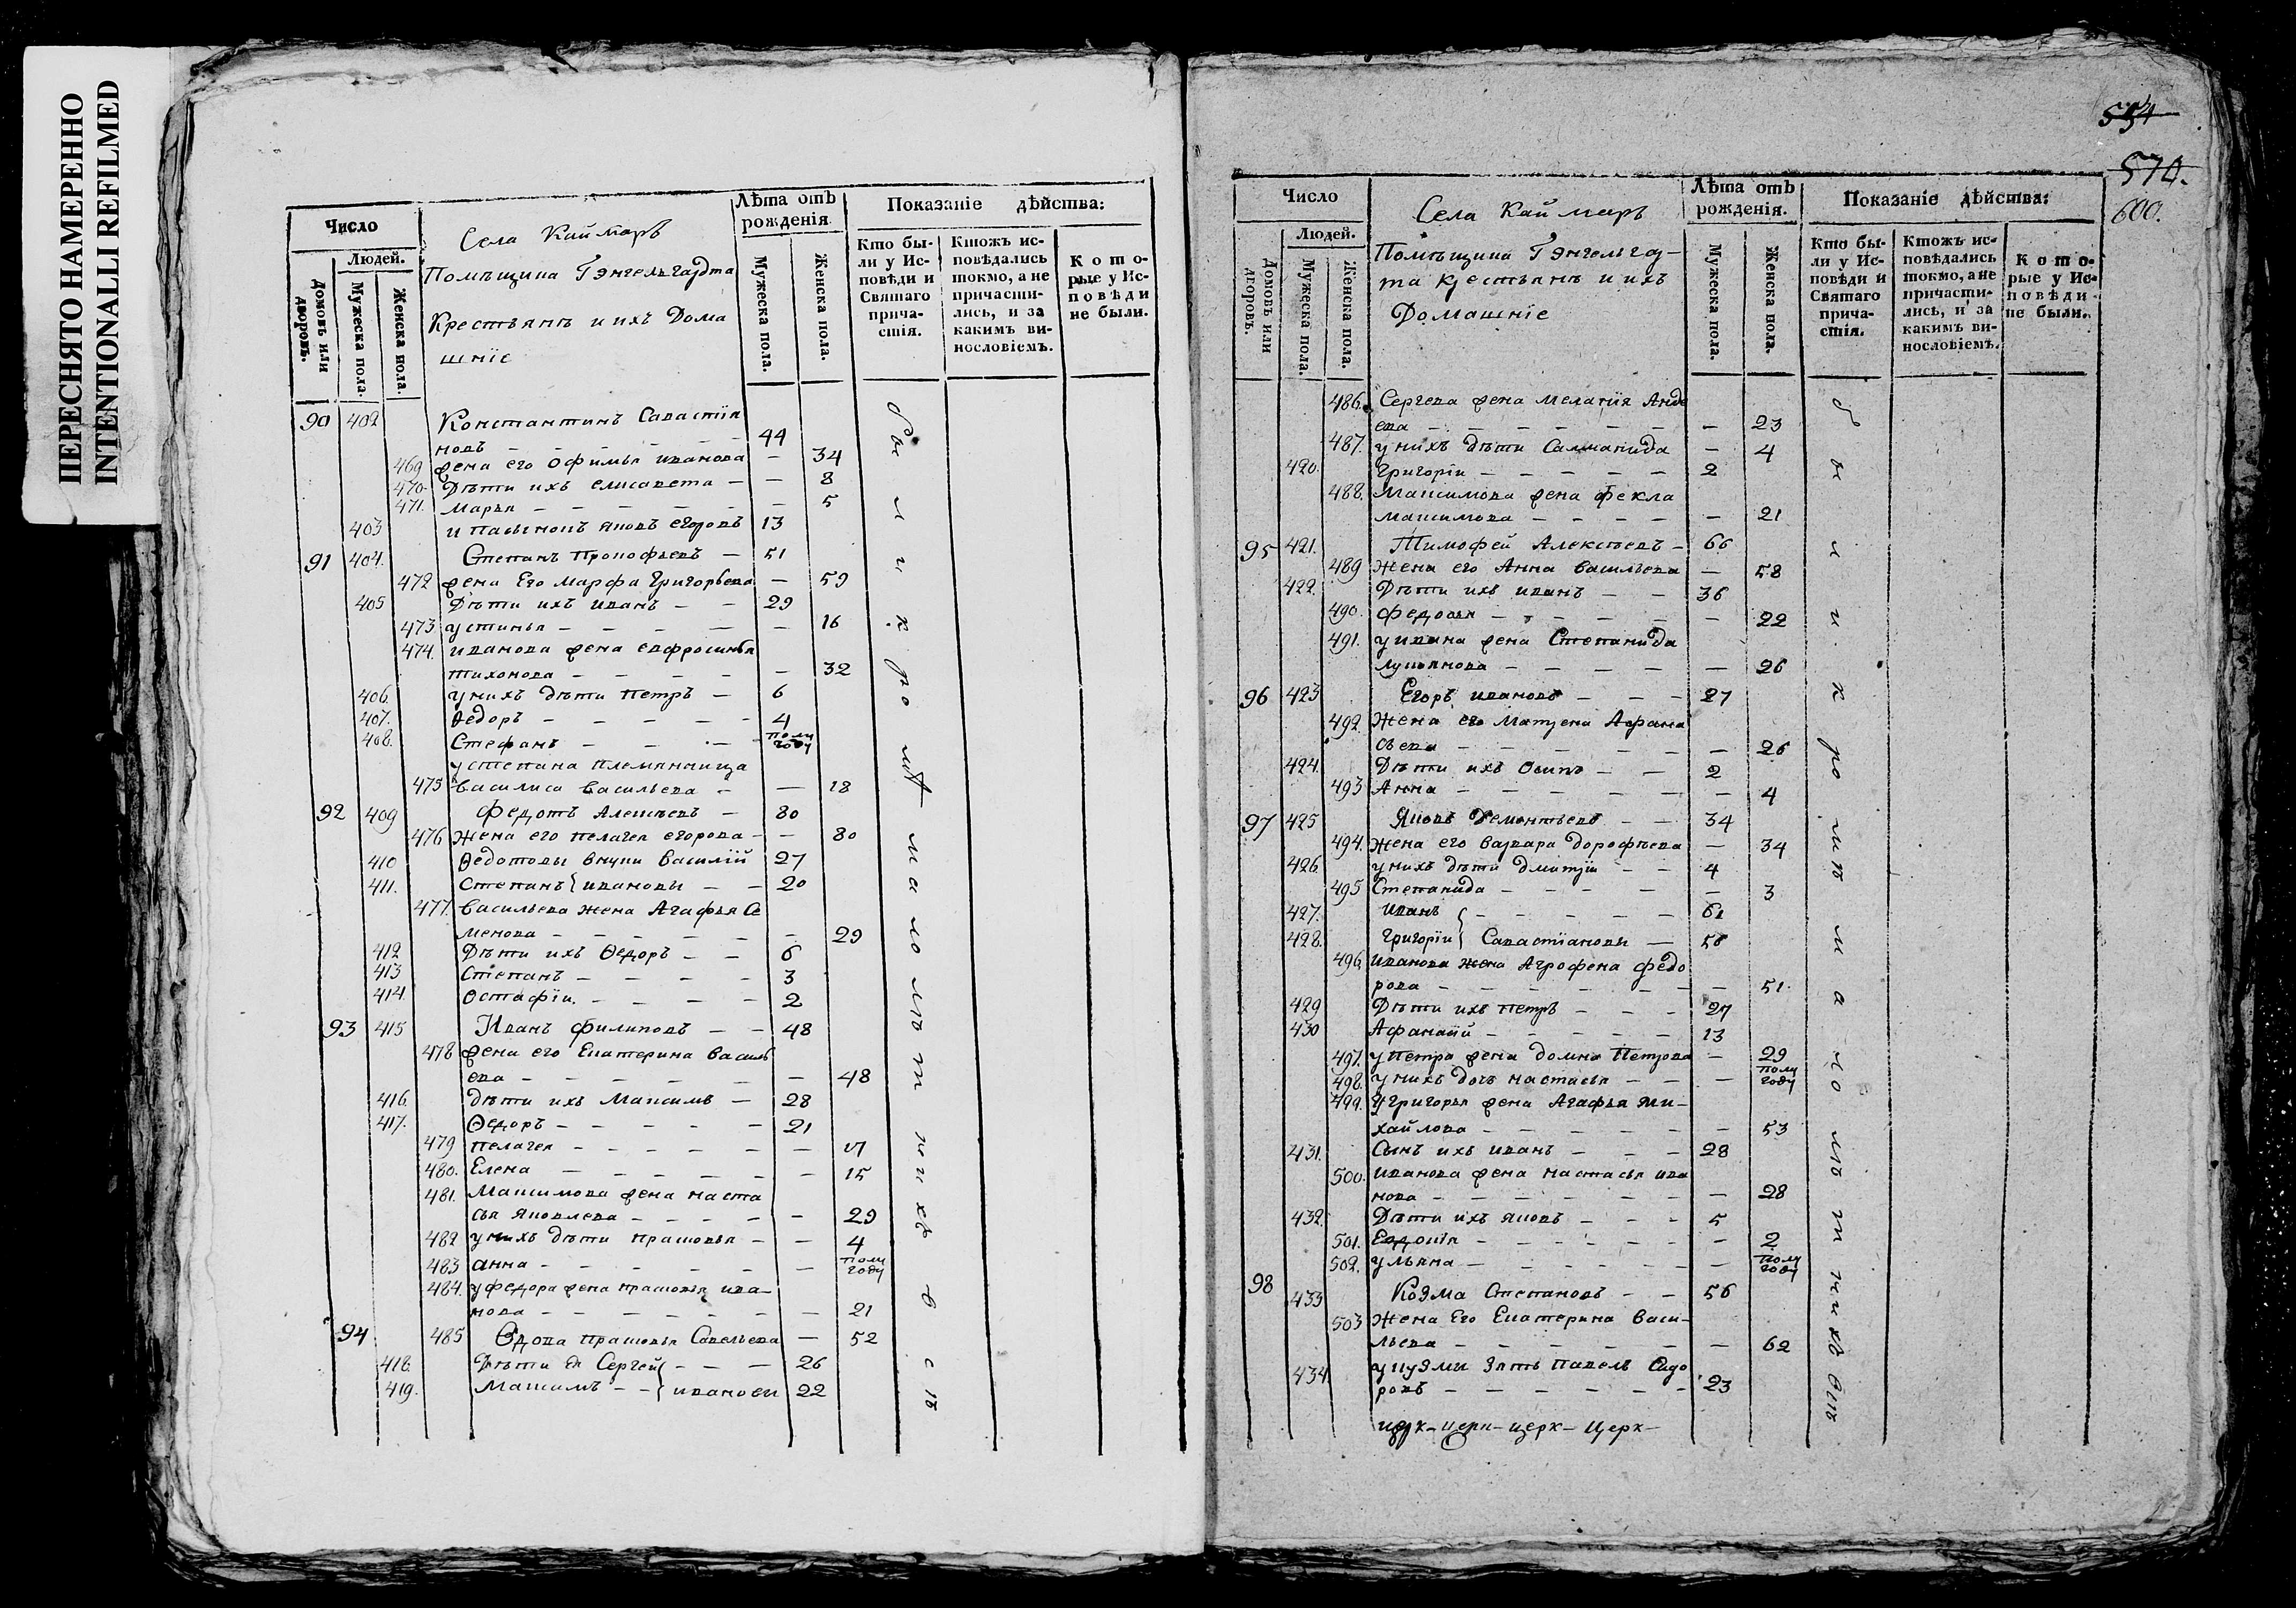 ПЕРЕСНЯТО НАМЕРЕННО
INTENTIONALLI REFILMED
Число
Людей.
Домовъ или дворовъ.
Мужеска пола.
Женска пола.
Села Каймаръ
Помѣщика Гэнгельгардта
Крестьянъ и ихъ Дома
шнїе
Лѣта отъ рождения
Мужеска пола.
Женска пола.
Показанїе дѣйства:
Кто бы-
ли у Ис-
повѣди и
Святаго
прича-
стїя.
Ктожъ ис-
повѣдались
токмо, а не
причасти-
лись, и за
какимъ ви-
нословїемъ.
Кото-
рые у Ис-
повѣди
не были.
90 402 Константинъ Савастїя
новъ – – – – 44
469 жена его Офимья иванова – 34
470. Дѣти ихъ елисавета – – 8
471. Марья – – – – – 5
403 и пасынокъ яковъ егоровъ 13
91 404. Степанъ Прокофьевъ – 51
472 жена Его Марфа Григорьева – 59
405 Дѣти ихъ иванъ – – 29
473 устинья – – – – – 16
474. иванова жена евфросинья
тихонова – – – – – 32
406. у нихъ дѣти петръ – 6
407. Ѳедоръ – – – – – 4
408. Стефанъ – – – полу году
у степана племянница
475 василиса васильева – – 18
92 409 Федотъ Алексѣевъ – 80
476 Жена его пелагея егорова – – 80
410 Ѳедотовы внуки василїй 27
411. степанъ } ивановы – – 20
477. васильева жена Агафья Се
менова – – – – – – 29
412 Дѣти ихъ Ѳедоръ – – 6
413 степанъ – – – – 3
414. Остафїи. – – – – 2
93 415 Иванъ Филиповъ – – 48
478 жена его Екатерина василь
ева – – – – – – 48
416. дѣти ихъ Максимъ – 28
417. Ѳедоръ – – – – – 21
479 пелагея – – – – – –
480. Елена – – – – – – 15
481. Максимова жена наста
сья яковлева – – – – – 29
482 у нихъ дѣти прасковья – – 4
483 анна – – – – – – полу году
484. у федора жена прасковья ива–
нова – – – – – – 21
94 485 Вдова прасковья Савельева – 52
418. Дѣти ея Сергей } – – – 26
419. Максимъ – – } ивановы 22
были к ро тъ ма но лѣтнихъ всѣ
554
570.
600.
Число
Людей.
Домовъ или дворовъ.
Мужеска пола.
Женска пола.
Села Каймаръ
Помѣщика Гэнгельгар–
та крестьянъ и ихъ
Домашнїе
Лѣта отъ рождения.
Мужеска пола.
Женска пола.
Показанїе дѣйства:
Кто бы-
ли у Ис-
повѣди и
Святаго
прича-
стїя.
Ктожъ ис-
повѣдались
токмо, а не
причасти-
лись, и за
какимъ ви-
нословїемъ.
Кото-
рые у Ис-
повѣди
не были.
486. Сергева жена меланїя Анд
ева – – – – – – – 23
487. у нихъ дѣти Саломанида – 4
420. Григорїи – – – – – 2
488. Максимова жена фекла
максимова – – – – – 21
95 421. Тимофей Алексѣевъ – 66
489 Жена его Анна васильева – 58
422. Дѣти ихъ иванъ – – 36
490. федосья – – – – – 22
491. у ивана жена Степанида
лукьянова – – – – – 26
96 423 Егоръ ивановъ – – – 27
492. Жена его Матрена Афана
сьева – – – – – – – 26
424. Дѣти ихъ Осипъ – – 2
493 Анна – – – – – – – 4
97 425 Яковъ Дементьевъ – – 34
494. Жена его варвара дорофѣева – 34
426. у нихъ дѣти дмитрїи – – 4
495 Степанида – – – – – 3
427. иванъ { – – – – – 61
428. григорїи } Савастїановы – 56
496. иванова жена Агрофена федо
рова – – – – – – – 51.
429 Дѣти ихъ петръ – – – 27
430 Афанасїй – – – – – 13
497. у петра жена домна Петрова – 29
498. у нихъ дочь настасья – – – полу году
499. у григорья жена Агафья ми–
хайлова – – – – – – 53
431. Сынъ ихъ иванъ – – – 28
500. иванова жена настасья ива
нова – – – – – – – 28
432. Дѣти ихъ яковъ – – – 5
501. Евдокїя – – – – – – – 2
502. ульяна – – – – – – – полу году
98 433 Козма Степановъ – – 56
503 Жена Его Екатерина васи–
льева – – – – – – 62
434. у кузмы зять павелъ Сидо
ровъ – – – – – – 23
церк–церк–церк–Церк–
были к ро мѣ ма но лѣтнихъ всѣ